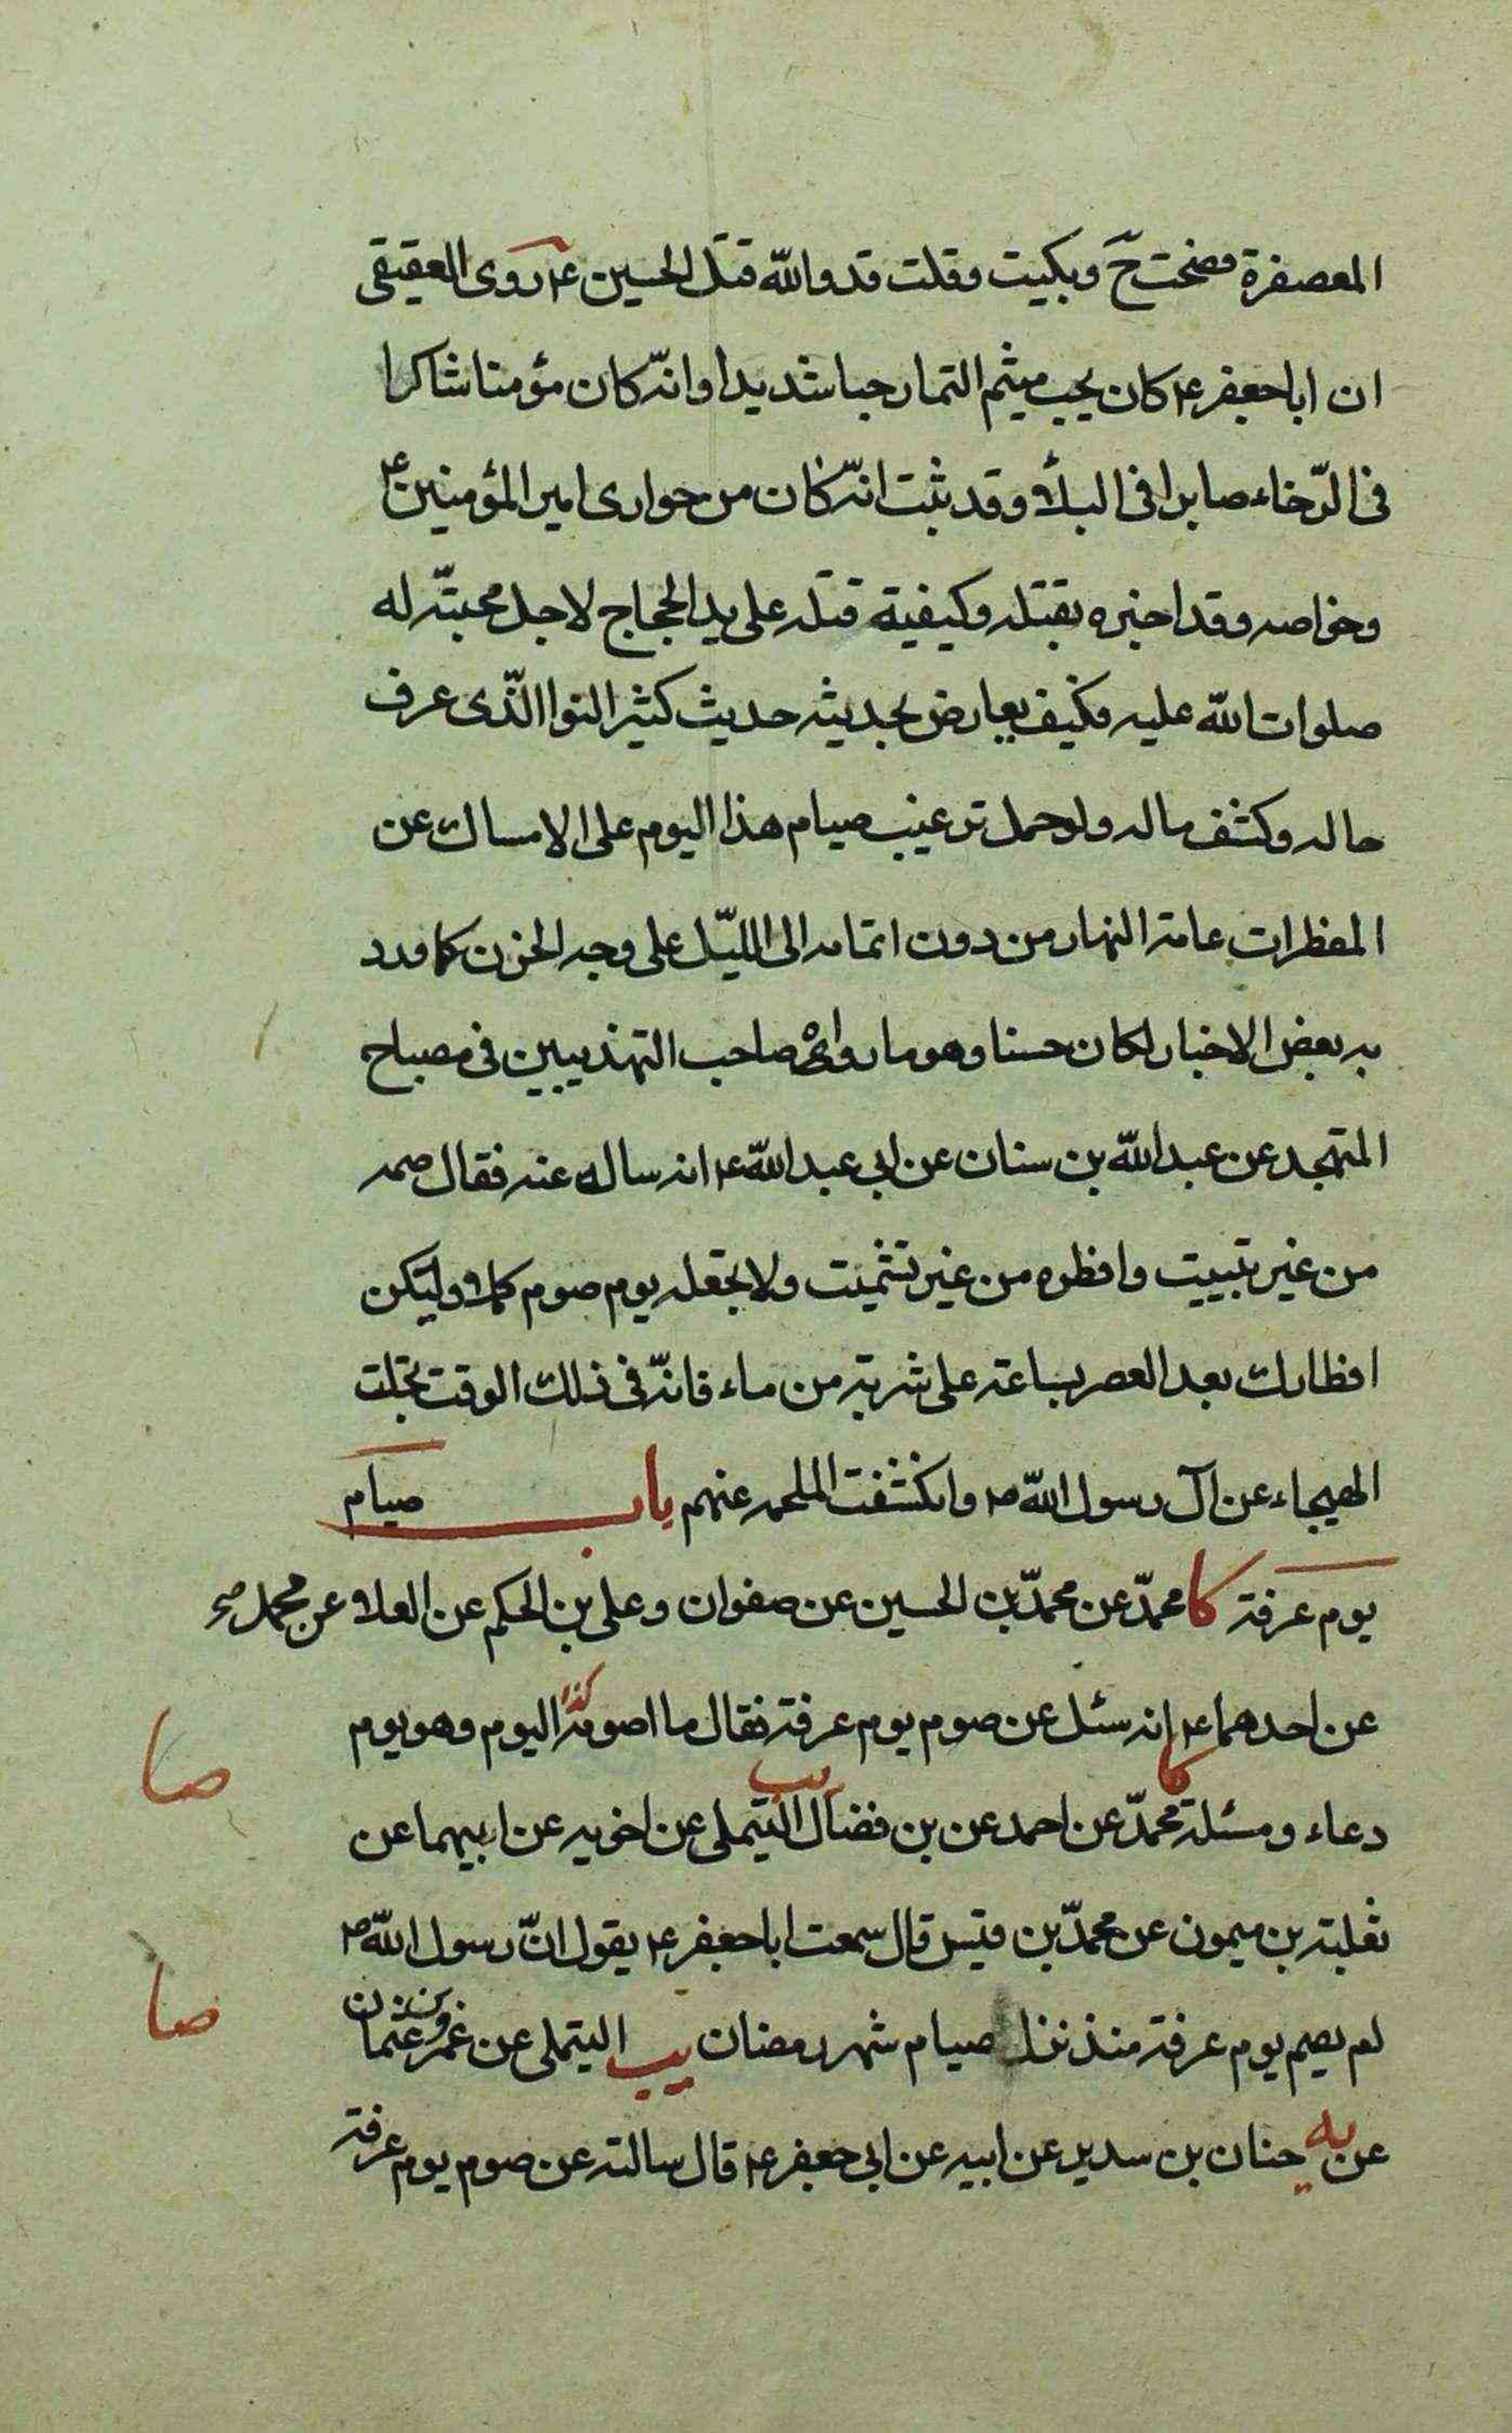 المعصفرة فصحت ح وبكيت وقلت قد والله قتل الحسين ع روى العقيقى
ان ابا جعفر ع كان يحب ميثم التمار حبا شديدا وانه كان مؤمنا شاكرا
فى الرّخاء صابرا فى البلاء وقد ثبت انّه كان من حوارى امير المؤمنين ع
وخواصه وقد اخبره بقتله وكيفية قتله على يد الحجاج لاجل محبتّه له
صلوات اللّه عليه فكيف يعارض بحديثه حديث كثير النوا الّذى عرف
حاله وكشف ماله ولو حمل ترغيب صيام هذا اليوم على الامساك عن
المفطرات عامة النهار من دون اتمامه الى الليّل على وجه الحزن كما ورد
به بعض الاخبار لكان حسنا وهو ما رواه صاحب التهذيبين فى مصباح
المتهجد عن عبد اللّه بن سنان عن ابي عبد اللّه ع انه ساله عنه فقال صمه
من غير تبييت وافطره من غير تشميت ولا تجعله يوم صوم كملا وليكن
افطارك بعد العصر بساعة على شربة من ماء فانّه فى ذلك الوقت تجلت
الهيجاء عن آل رسول اللّه ص وانكشفت الملحمه عنهم باب صيام
يوم عرفة كا محمدّ عن محمدّ بن الحسين عن صفوان وعلى بن الحكم عن العلاء عن محمد
عن احدهما ع انه سئل عن صوم يوم عرفة فقال ما اصومه اليوم وهو يوم
صا
دعاء ومسئلة كا محمدّ عن احمد عن بن فضال يب التيملى عن اخويه عن ابيهما عن
ثعلبة بن ميمون عن محمدّ بن قيس قال سمعت ابا جعفر ع يقول انّ رسول اللّه ص
صا
لم يصم يوم عرفة منذ نزل صيام شهر رمضان يب التيملى عن عمرو بن عثمان
عن يه حنان بن سدير عن ابيه عن ابى جعفر ع قال سالته عن صوم يوم عرفة